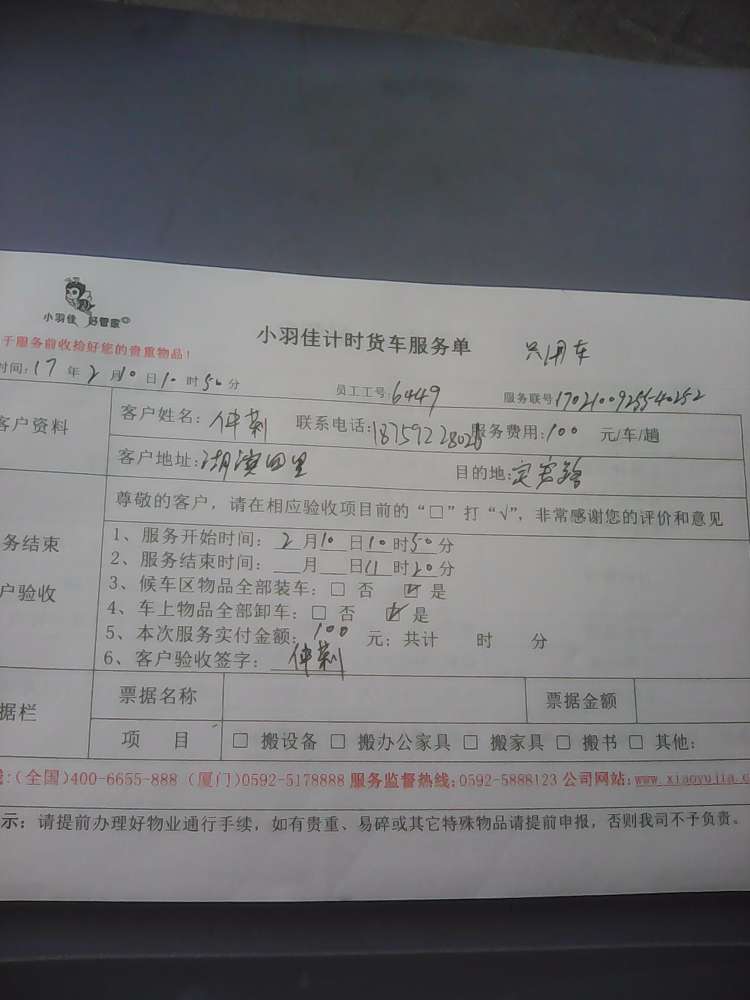 小羽佳 好管家
小羽佳计时货车服务单
只用车
于服务前收拾好您的贵重物品！
时间：17 年 2 月 10 日 10 时 50 分
员工工号：6449
服务联号 1702100925540252
客户资料
客户姓名： 联系电话： 服务费用：100 元/车/趟
客户地址：湖滨四里 目的地：
尊敬的客户，请在相应验收项目前的“□”打“√”，非常感谢您的评价和意见
务结束
户验收
1、服务开始时间： 2 月 10 日 10 时 50 分
2、服务结束时间： 月 日 11 时 20 分
3、候车区物品全部装车：□ 否 ☑ 是
4、车上物品全部卸车：□ 否 ☑ 是
5、本次服务实付金额：100 元；共计 时 分
6、客户验收签字：
据栏
票据名称 票据金额
项 目 □ 搬设备 □ 搬办公家具 □ 搬家具 □ 搬书 □ 其他：
线：(全国)400-6655-888 (厦门)0592-5178888 服务监督热线：0592-5888123 公司网站：www.xiaoyujia.c
示：请提前办理好物业通行手续，如有贵重、易碎或其它特殊物品请提前申报，否则我司不予负责。